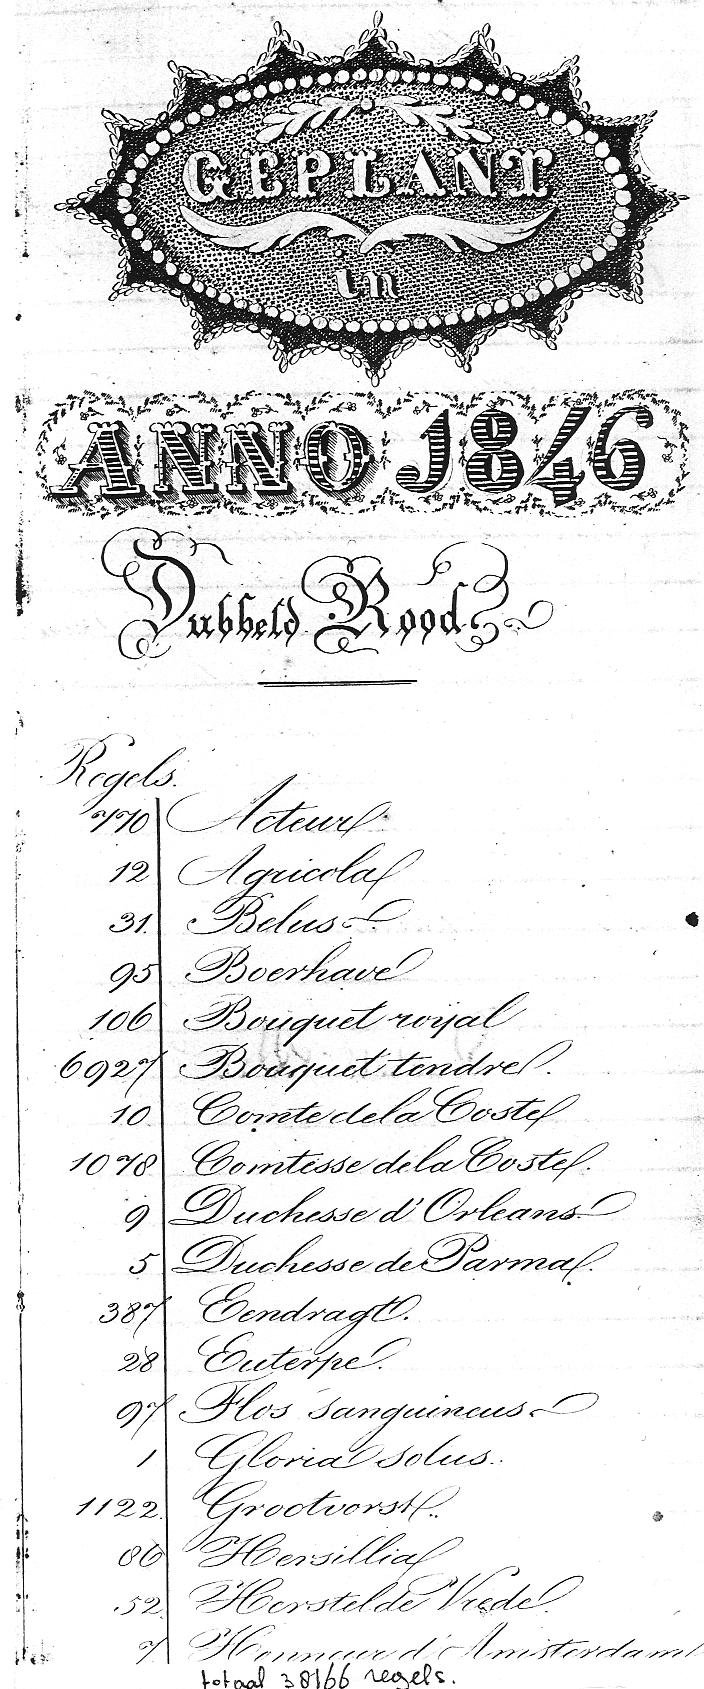 GEPLANT
in
ANNO 1846
Dubbeld Rood
Regels.
770 Acteur
12 Agricola
31. Belus
95 Boerhave
106 Bouquet royal
6927 Bouquet tendre.
10 Comte de la Coste
1078 Comtesse de la Coste.
9 Duchesse d'Orleans
5 Duchesse de Parma.
387 Eendragt.
28 Euterpe.
97 Flos sanguineus
1 Gloria solus.
1122. Grootvorst.
86 Hersillia
52. Herstelde Vrede.
7 Honneur d'Amsterdam
totaal 38166 regels.